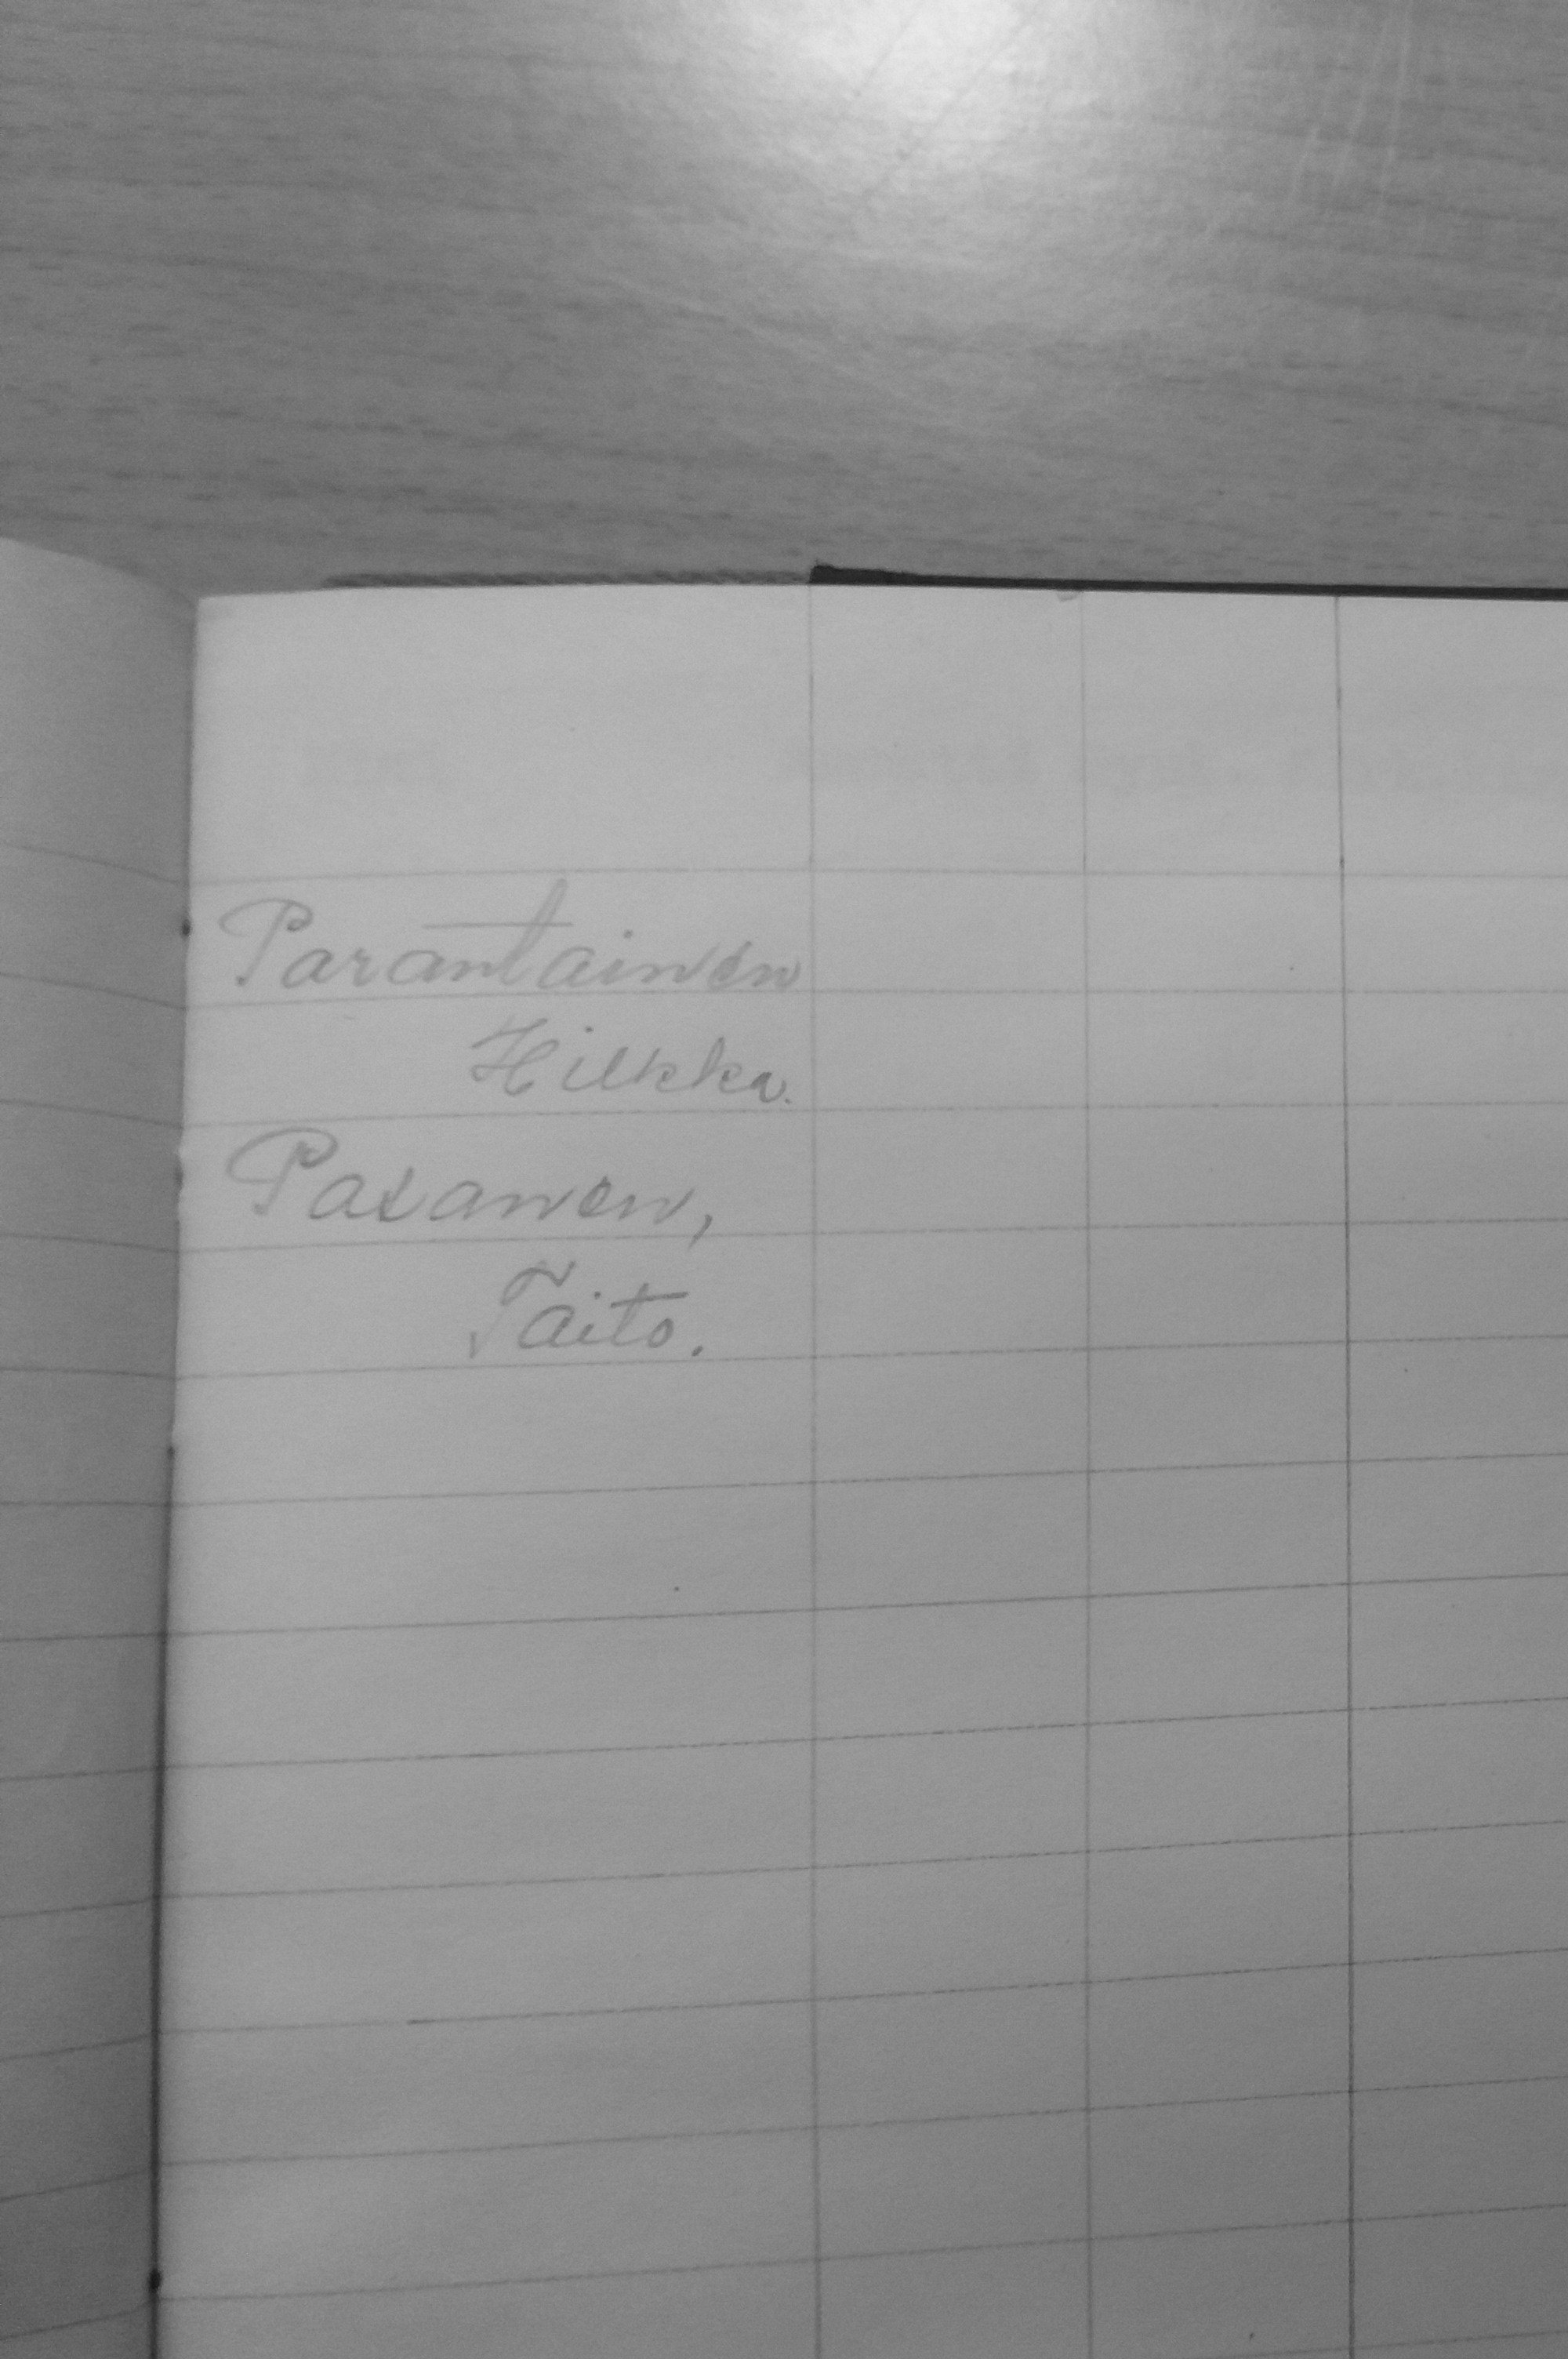 Parantainen
Hilkka.
Pasanen,
Taito.